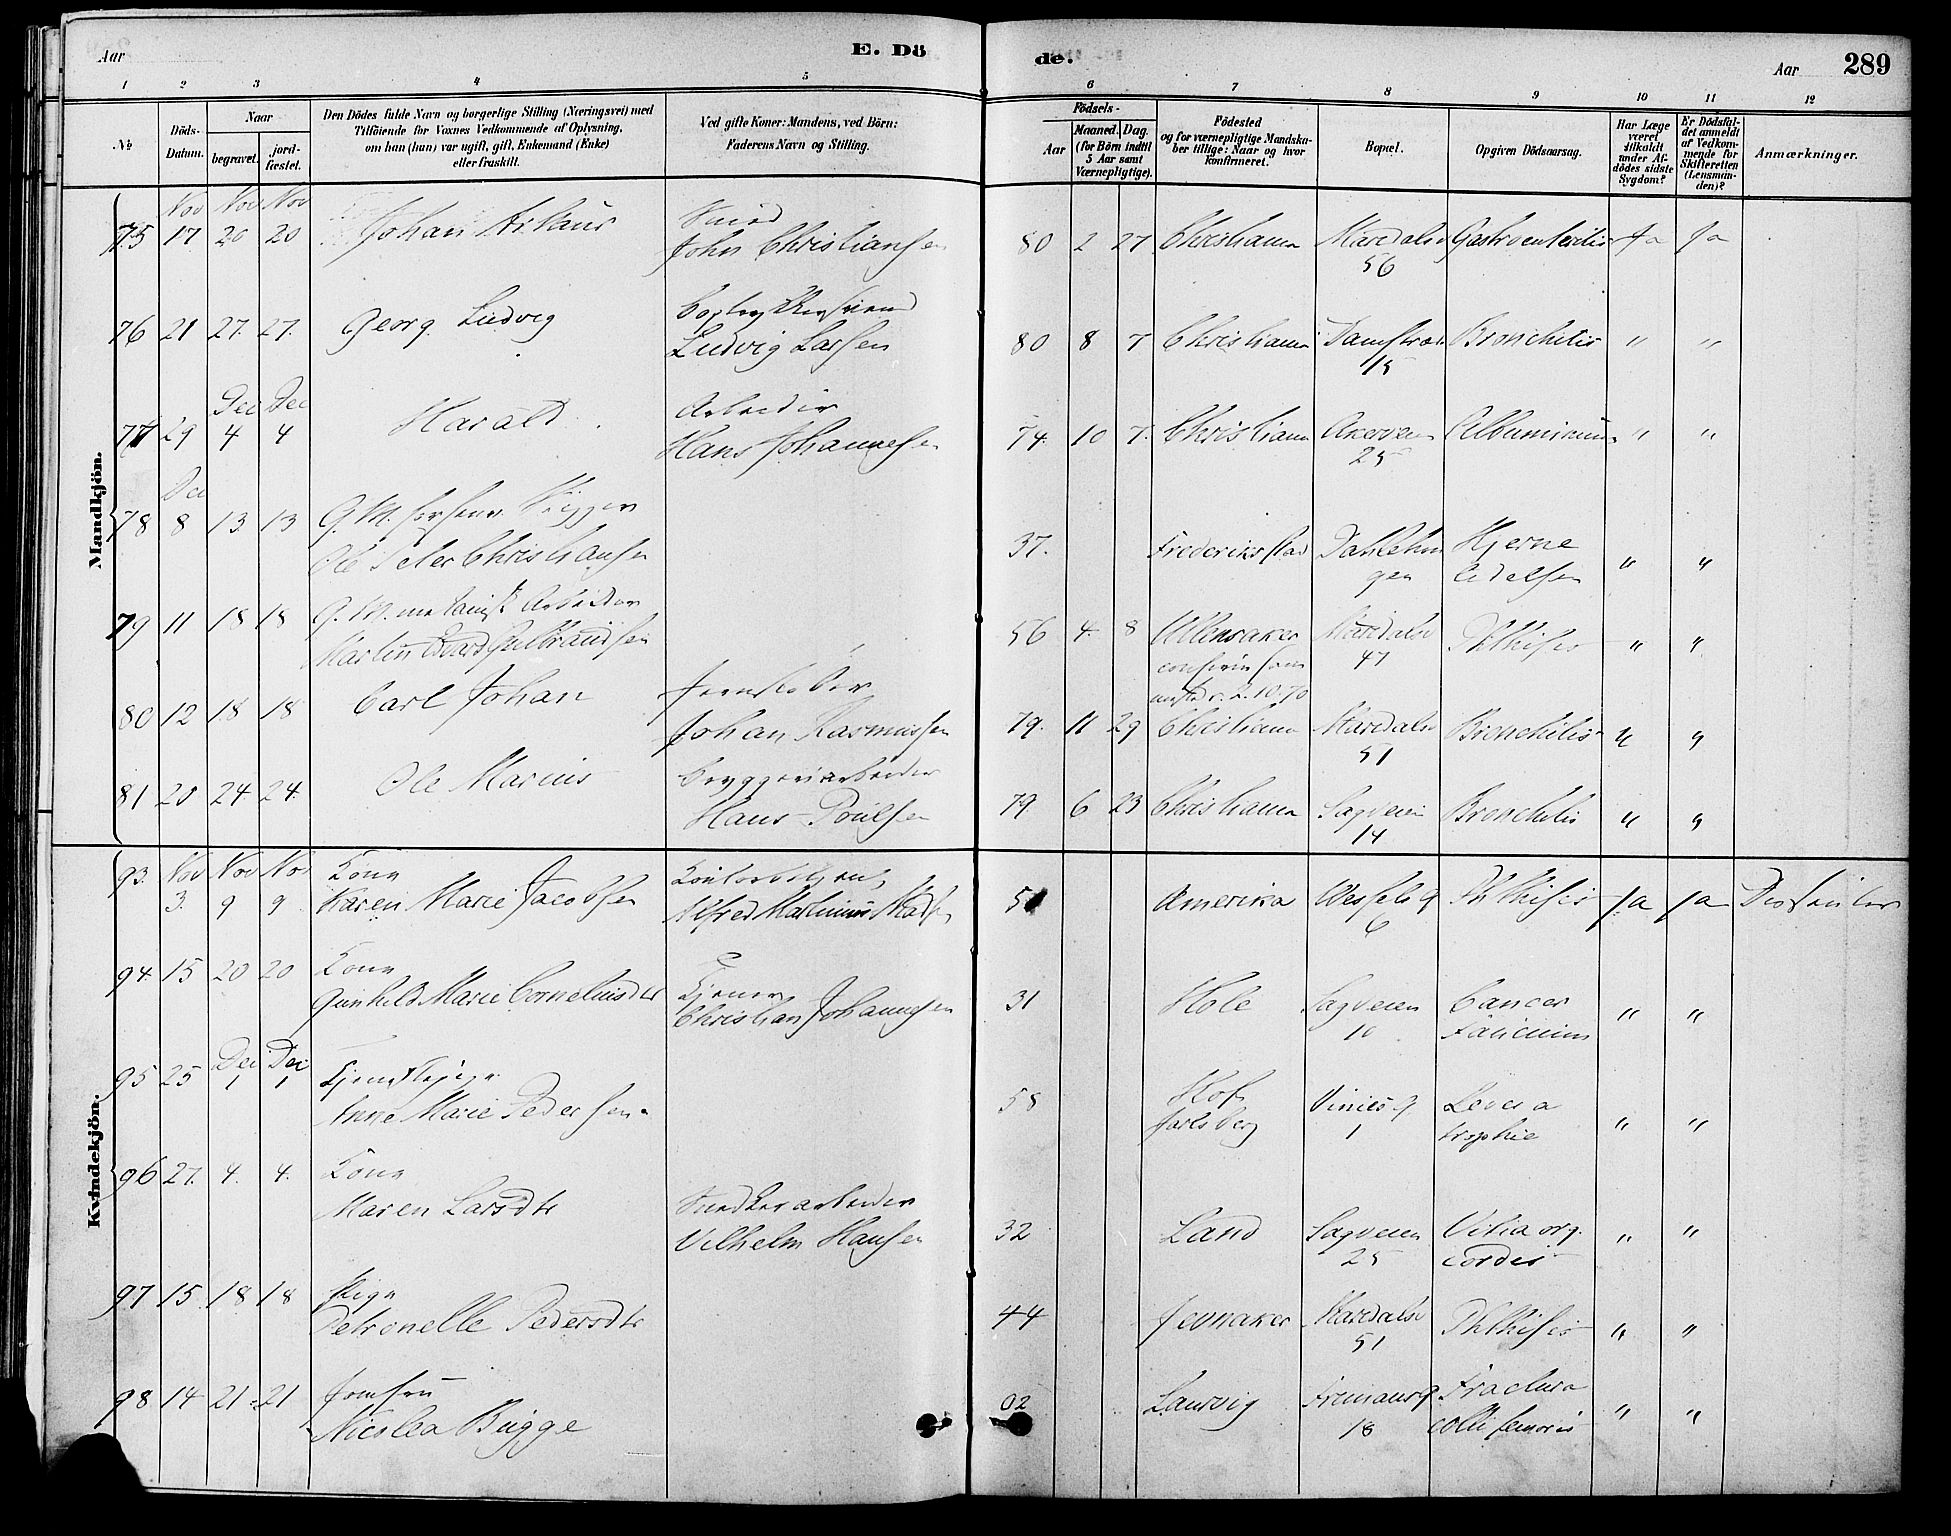 Aar
E. Dö
de.
Aar 289
1 2 3 4 5 6 7 8 9 10 11 12
No
Döds-Datum.
Naar
begravet.
jord-fæstet.
Den Dödes fulde Navn og borgerlige Stilling (Næringsvei) med
Tilföiende for Voxnes Vedkommende af Oplysning,
om han (hun) var ugift, gift, Enkemand (Enke)
eller fraskilt.
Ved gifte Koner: Mandens, ved Börn:
Faderens Navn og Stilling.
Födsels-
Aar
Maaned. Dag.
(for Börn indtil
5 Aar samt
Værnepligtige).
Födested
og for værnepligtige Mandska-
ber tillige: Naar og hvor
konfirmeret.
Bopæl.
Opgiven Dödsaarsag.
Har Læge
været
tilkaldt
under Af-
dödes sidste
Sygdom?
Er Dödsfal-
det anmeldt
af Vedkom-
mende for
Skifteretten
(Lensman-
den)?
Anmærkninger.
Mandkjön.
Nov Nov Nov
75 17 20 20 Johan Arthur
Smed
John Christiansen
80 2 27 Christiania Maridalsv 56 Gastroenteritis Ja Ja
76 21 27. 27. Georg Ludvig
Ludvig Larsen
80 8 7 Christiania Damstræd 15 Bronchitis " "
Dec Dec
77 29 4 4 Harald
Arbeider
Hans Johannesen
74. 10 7. Christiania Akersvei 25 " "
Dec
78 8 13 13 G. M.
Ole Peter Christiansen
37. Frederikstad Hjerne
lidelsen " "
79 11 18 18 G. M. Arbeider
Martin Edvard Gulbrandsen
56 4. 8 Ullensaker Maridalsv 47 Phthisis " "
2.10.70
80 12 18 18 Carl Johan
Johan Rasmussen
79. 11 29 Christiania Maridalsv 51 Bronchitis " "
81 20 24. 24. Ole Marius
Bryggeriarbeider
Hans Poulsen
79. 6 23 Christiania Sagveien 14 Bronchitis " "
Kvindekjön.
93. Nov Nov Nov Kone
3. 9 9 Karen Marie Jacobsen
Alfred
51 Amerika Wessels g 6 Phthisis Ja Ja Dissenter
94. 15 20 20 Kone
Gunhild Marie Corneliusdtr
Christian Johannesen
31 Hole Sagveien 10 Cancer " "
Dec Dec
95 25 1 1
Anne Marie Pedersen
58 Hof
Jarlsberg 1 " "
96 27. 4. 4. Kone
Maren Larsdtr
Snedkerarbeider
Vilhelm Hansen
32 Land Sagveien 25 Vitia org.
cordis " "
97 15 18 18 Pige
Petronelle Pedersdtr
44 Jevnaker Maridalsv 51 Phthisis " "
98 14 21 21 Jomfru
Nicolea Bugge
02 Laurvig 18 Fractura
colli femoris " "